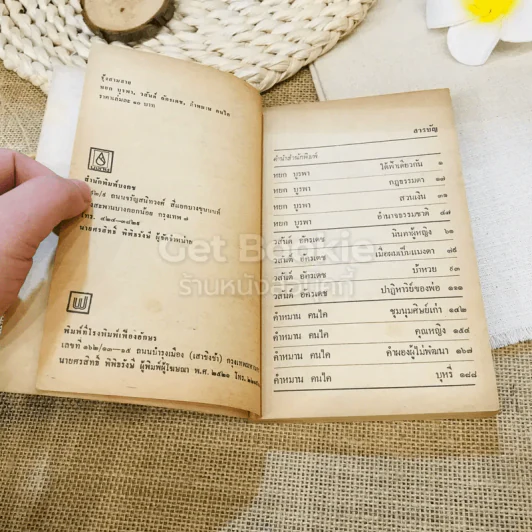 รุ้งสามสาย
หยก บูรพา, วสันต์ อัครเดช, กำหมาน คนไค
ราคาเล่มละ ๑๐ บาท
บงกช
สำนักพิมพ์บงกช
ถนนจรัญสนิทวงศ์ สี่แยกบางขุนนนท์
กรุงเทพ ๗
โทร. ๔๒๔-๐๘๒๕
นายศรสิทธิ์ พิพิธรังษี ผู้จัดจำหน่าย
พิมพ์ที่โรงพิมพ์เฟื่องอักษร
เลขที่ ๑๖๒/๑๓-๑๕ ถนนบำรุงเมือง (เสาชิงช้า) กรุงเทพมหานคร
นายศรสิทธิ์ พิพิธรังษี ผู้พิมพ์ผู้โฆษณา พ.ศ. ๒๕๒๑
สารบัญ
คำนำสำนักพิมพ์
หยก บูรพา ใต้ฟ้าเดียวกัน ๑
หยก บูรพา กฎธรรมดา ๑๗
หยก บูรพา สวนเงิน ๓๑
หยก บูรพา อำนาจธรรมชาติ ๔๗
วสันต์ อัครเดช นินทาผู้หญิง ๖๑
วสันต์ อัครเดช เมื่อผมเป็นแมงดา
วสันต์ อัครเดช บ้าหวย ๙๓
วสันต์ อัครเดช ปาฏิหาริย์ของพ่อ ๑๑๑
คำหมาน คนไค ชุมนุมศิษย์เก่า ๑๔๒
คำหมาน คนไค คุณหญิง ๑๕๔
คำหมาน คนไค คำผองผู้ไม่พัฒนา ๑๖๗
คำหมาน คนไค บุหรี่ ๑๘๘
Get Bookie
ร้านหนังสือ